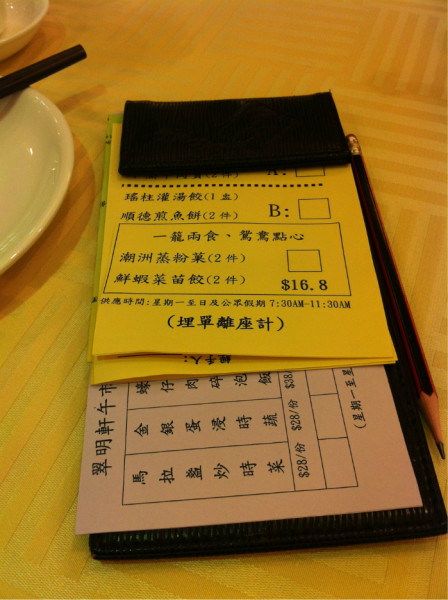 A:
瑤柱灌湯餃(1 亞)
順德煎魚餅(2 件)
B:
一籠兩食、鴛鴦點心
潮洲蒸粉菓(2 件)
鮮蝦菜苗餃(2 件)
$16.8
供應時間:星期一至日及公眾假期 7:30AM-11:30AM
(埋單離座計)
翠明軒午市
蠔仔肉碎泡飯
$38/
金銀蛋浸時蔬
$28/份
馬拉盞炒時菜
$28/份
(星期一至星